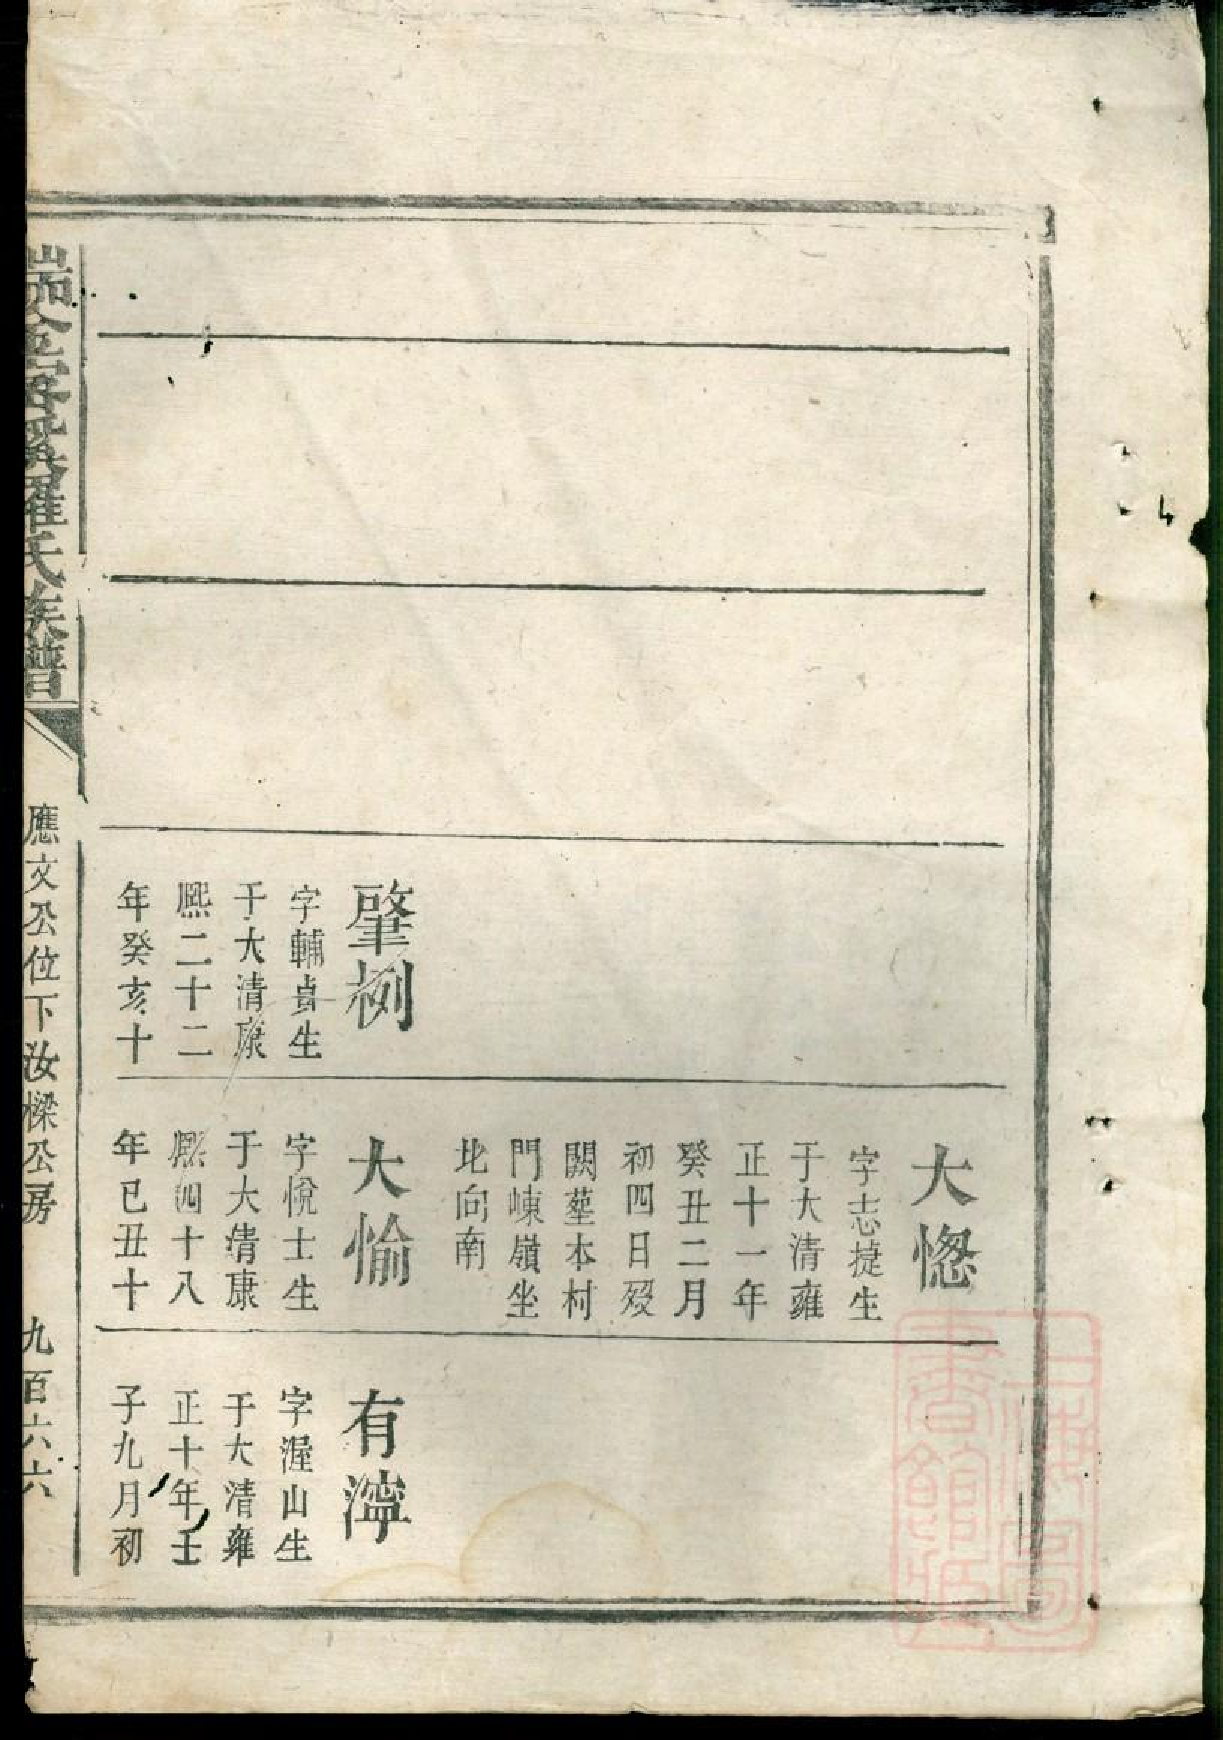 肇栵
字輔貞生
于大清康
熙二十二
年癸亥十
大愡
字志捷生
于大清雍
正十一年
癸丑二月
初四日歿
闕塟本村
門崠嶺坐
北向南
大愉
字悅士生
于大清康
熙四十八
年已丑十
有濘
字渥山生
于大清雍
正十年壬
子九月初
羅氏族譜
應文公位下汝樑公房
九百六六
上海圖
書館藏